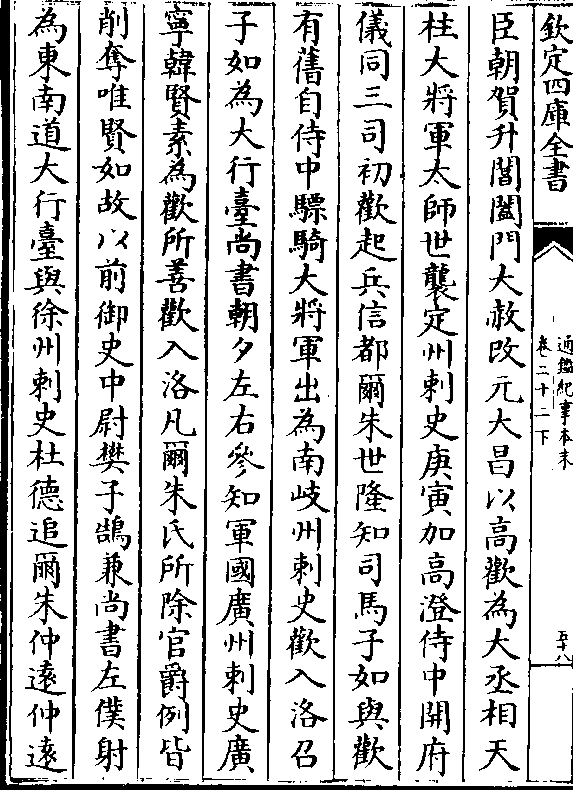 欽定四庫全書
通鑑紀事本末
卷二十二下
五十八
臣朝賀升閶闔門大赦改元大昌以高歡為大丞相天
柱大將軍太師世襲定州刺史庚寅加高澄侍中開府
儀同三司初歡起兵信都爾朱世隆知司馬子如與歡
有舊自侍中驃騎大將軍出為南岐州刺史歡入洛召
子如為大行臺尚書朝夕左右參知軍國廣州刺史廣
寧韓賢素為歡所善歡入洛凡爾朱氏所除官爵例皆
削奪唯賢如故以前御史中尉樊子鵠兼尚書左僕射
為東南道大行臺與徐州刺史杜德追爾朱仲遠仲遠